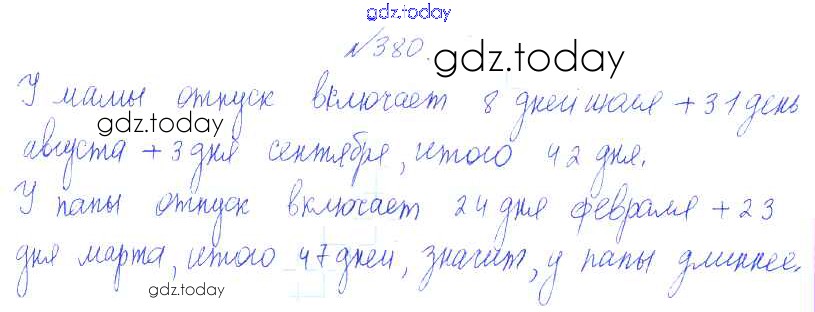 gdz.today
№380.
gdz.today
У мамы отпуск включает 8 дней июля + 31 день
gdz.today
августа + 3 дня сентября, итого 42 дня.
У папы отпуск включает 24 дня февраля + 23
дня марта, итого 47 дней, значит, у папы длиннее.
gdz.today